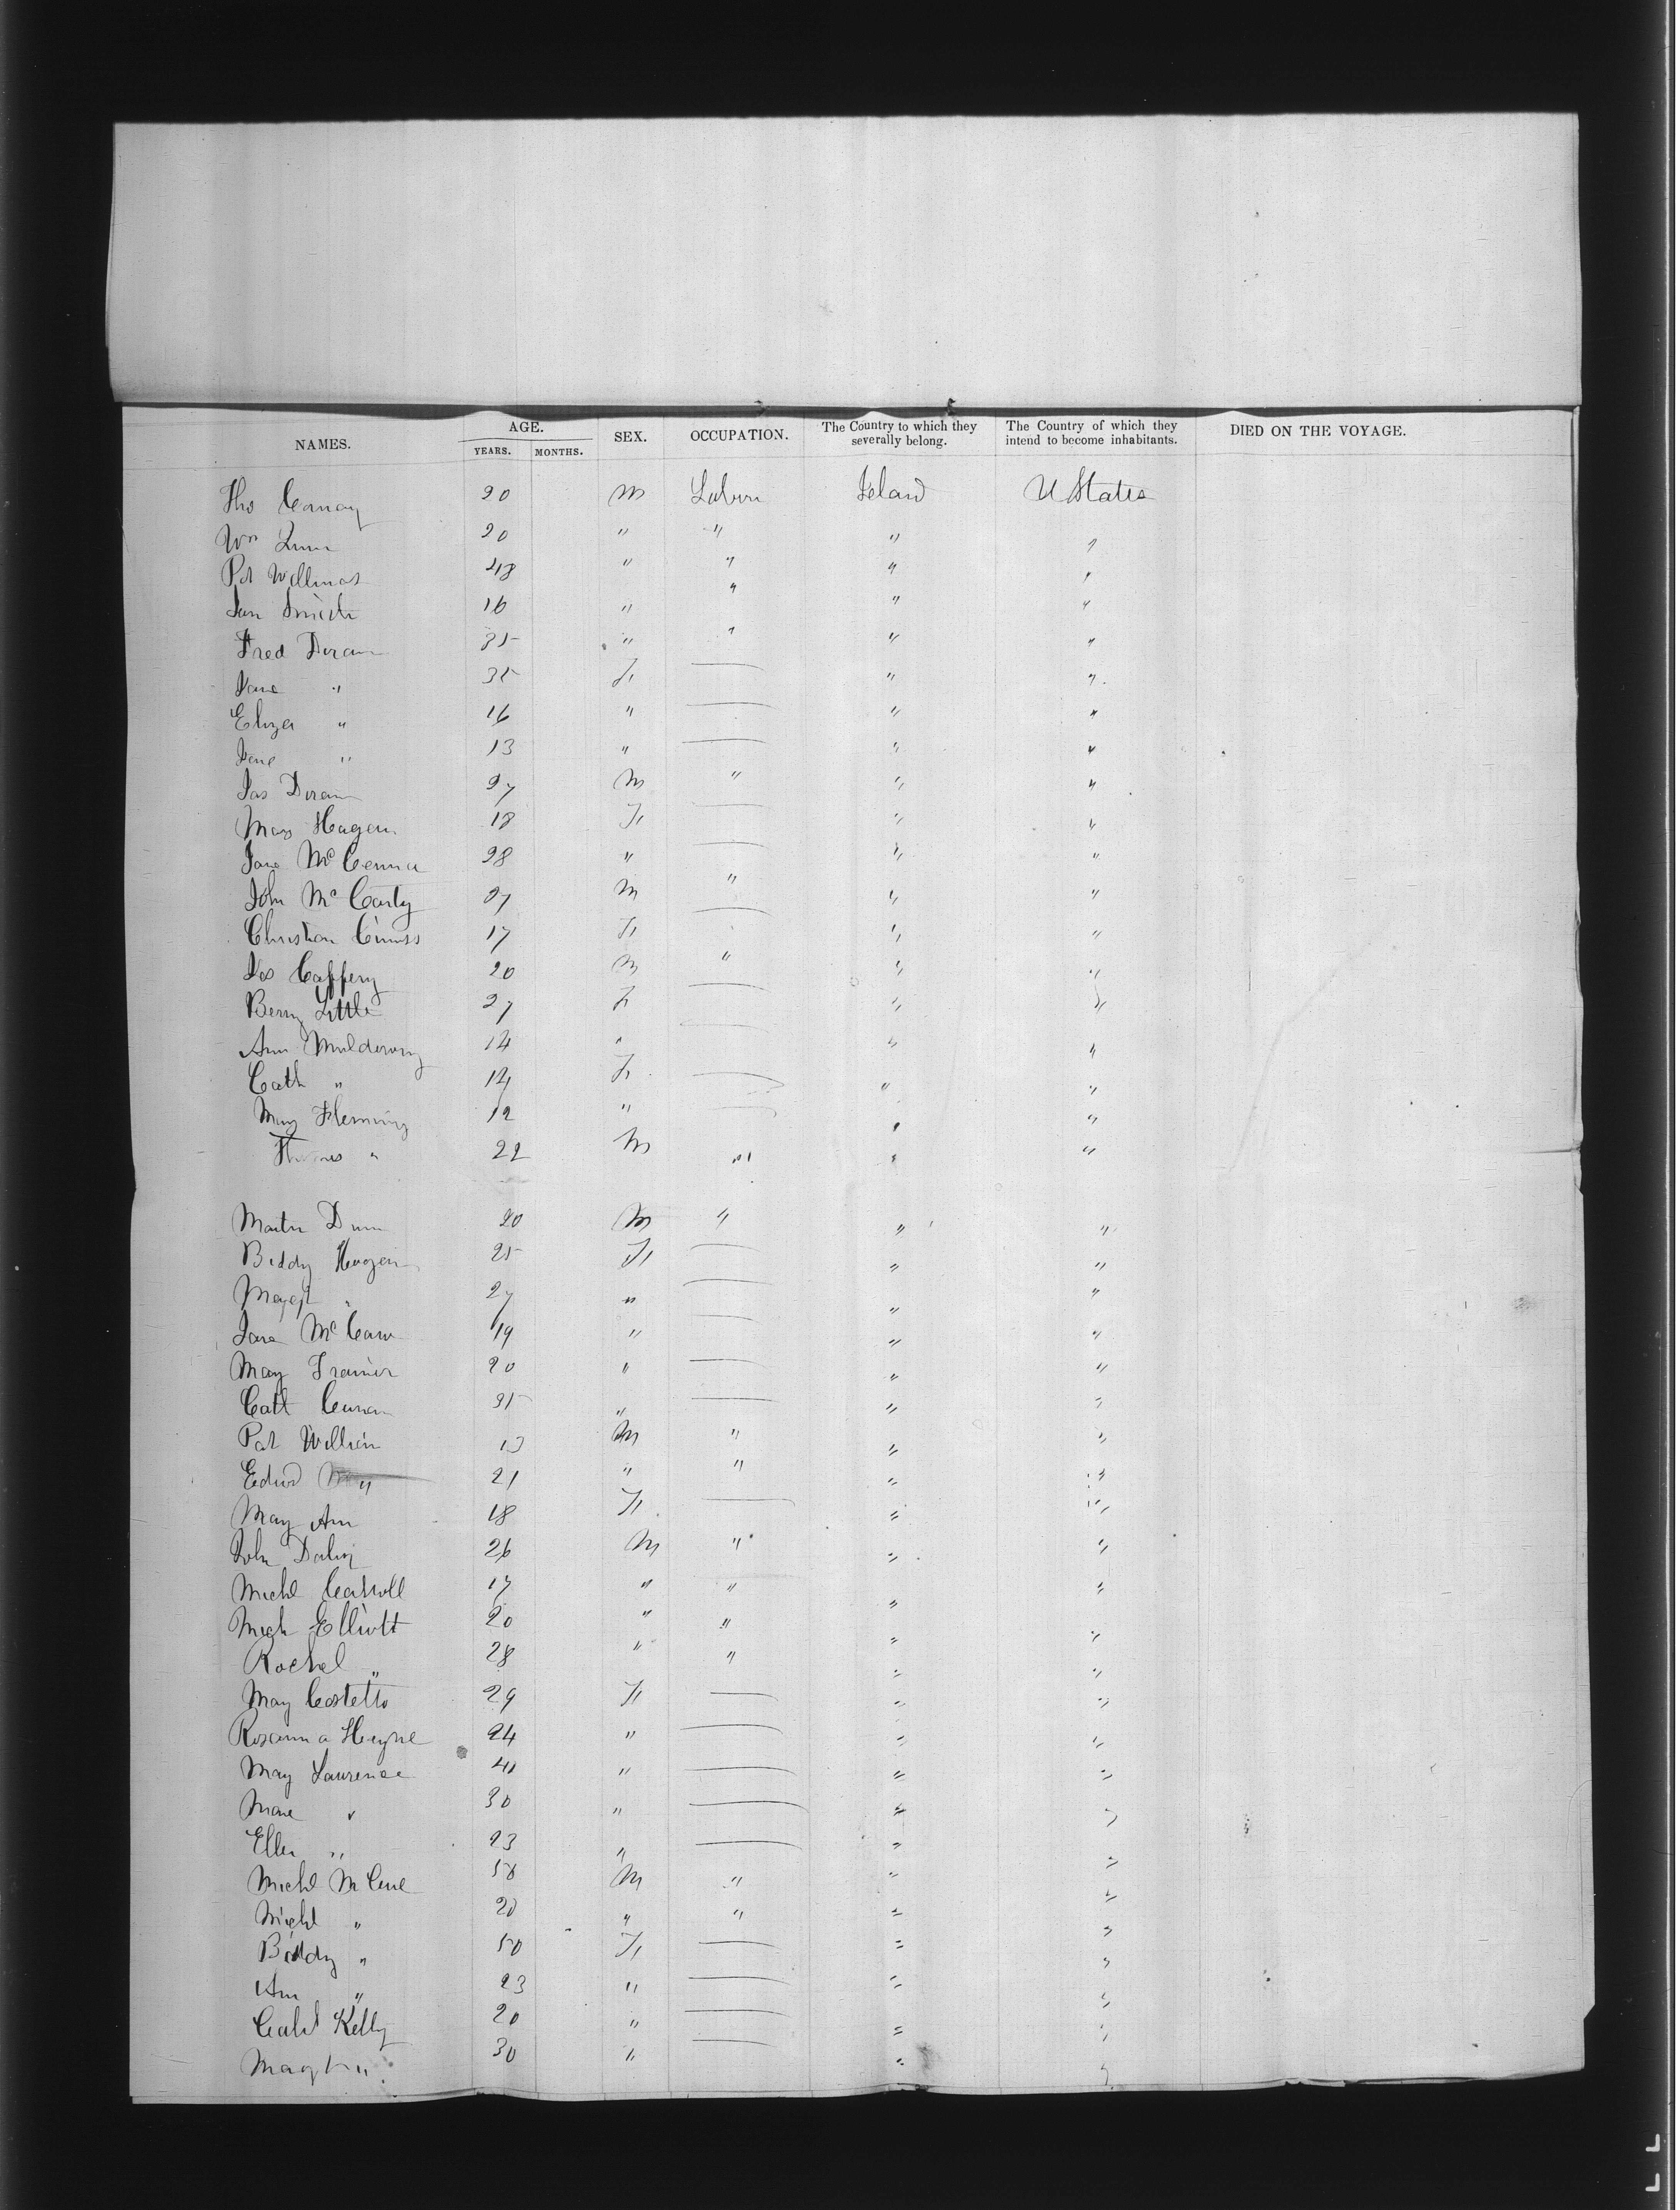 NAMES. AGE. YEARS. MONTHS. SEX. OCCUPATION. The Country to which they severally belong. The Country of which they intend to become inhabitants. DIED ON THE VOYAGE.
Tho 20 M Labur Ireland U States
Wm 20 " " " "
Pat 48 " " " "
16 " " " "
Fred Doran 35 " " " "
Jane " 35 F — " "
Eliza " 16 " — " "
Jane " 13 " — " "
Jas Doran 27 M " " "
Mary Hagan 18 F — " "
Jane McCenna 28 " — " "
John McCarty 27 M " " "
Christian 17 F — " "
Jas Caffery 20 M " " "
Little 27 F — " "
Ann 14 " — " "
Cath " 14 F — " "
Mary Fleming 12 " — " "
Thomas " 22 M " " "
Martin Dunn 20 M " " "
Biddy Hagen 25 F — " "
Magt " 27 " — " "
Jane McCaw 19 " — " "
May Trainer 20 " — " "
Cath Curran 35 " — " "
Pat 13 M " " "
Edwd " 21 " " " "
May Ann 18 F — " "
John 26 M " " "
Michl Carroll 17 " " " "
Elliott 20 " " " "
Rachel " 28 " " " "
May Costello 29 F — " "
Rosanna 24 " — " "
May Laurence 41 " — " "
" 30 " — " "
Ellen " 23 " — " "
Michl McCue 58 M " " "
Michl " 20 " " " "
Biddy " 50 F — " "
Ann " 23 " — " "
Kelly 20 " — " "
Magt " 30 " — " "